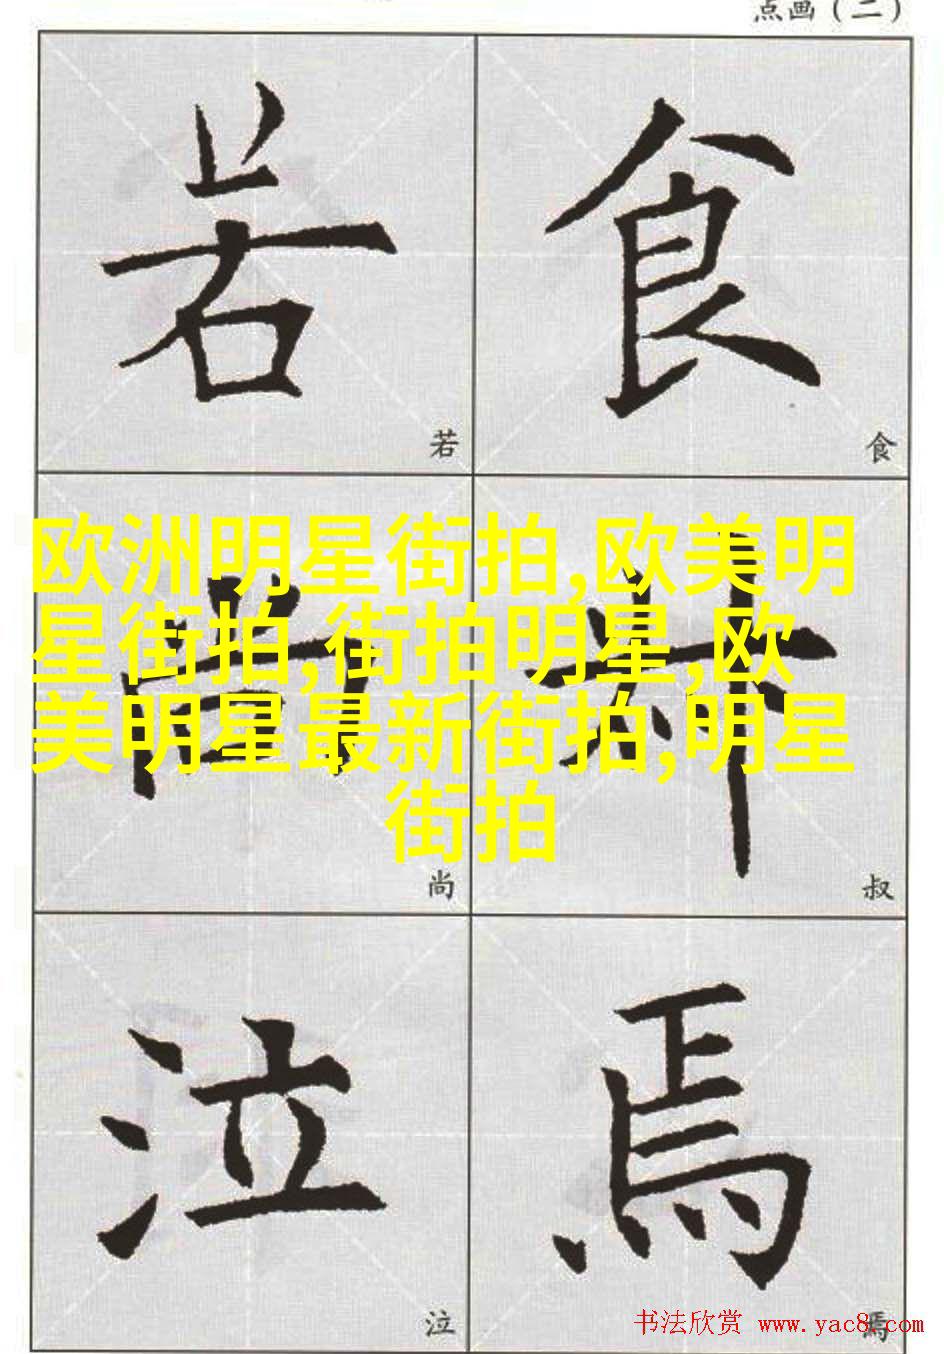 点画（二）
若 食
若 食
欧洲明星街拍,欧美明
星街拍,街拍明星,欧
美明星最新街拍,明星
街拍
尚 叔
尚 叔
泣 焉
泣 焉
书法欣赏 www.yac8.com